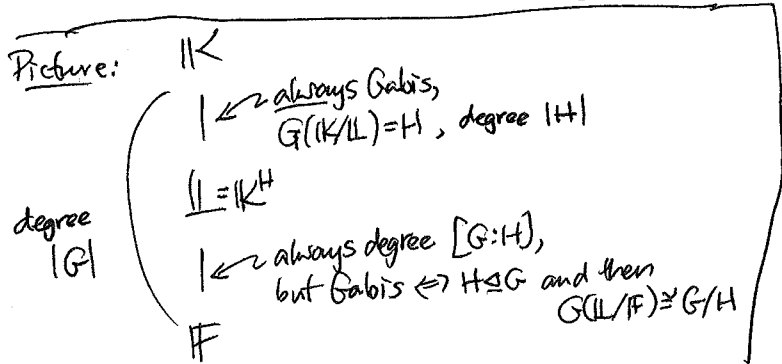 Picture: 𝕂
always Galois,
G(𝕂/𝕃)=H, degree |H|
𝕃=𝕂^H
degree
|G|
always degree [G:H],
but Galois ⇔ H⊴G and then
G(𝕃/𝔽)≅G/H
𝔽